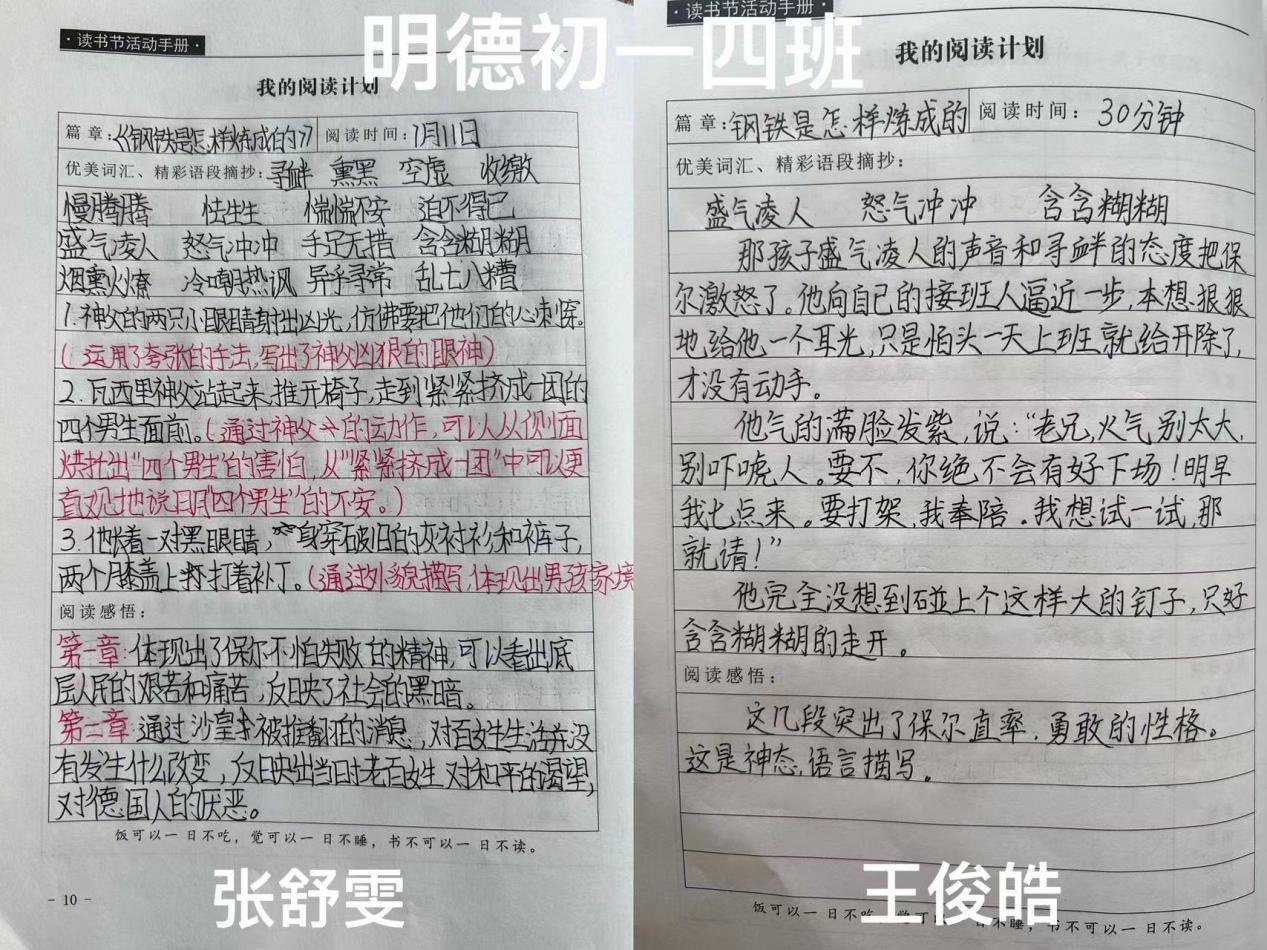 明德初一四班
·读书节活动手册·
我的阅读计划
篇章:《钢铁是怎样炼成的》 阅读时间:1月11日
优美词汇、精彩语段摘抄:寻衅 熏黑 空虚 收缴
慢腾腾 怯生生 惴惴不安 迫不得已
盛气凌人 怒气冲冲 手足无措 含含糊糊
烟熏火燎 冷嘲热讽 异乎寻常 乱七八糟
1.神父的两只小眼睛射出凶光,仿佛要把他们的心刺穿。
(运用了夸张的手法,写出了神父凶狠的眼神)
2.瓦西里神父站起来,推开椅子,走到紧紧挤成一团的
四个男生面前。(通过神父的动作,可以从侧面
烘托出"四个男生"的害怕,从"紧紧挤成一团"中可以更
直观地说明"四个男生"的不安。)
3.他长着一对黑眼睛,身穿破旧的灰衬衫和裤子,
两个膝盖上打着补丁。(通过外貌描写,体现出男孩家境
阅读感悟:
第一章:体现出了保尔不怕失败的精神,可以看出底
层人民的艰苦和痛苦,反映了社会的黑暗。
第二章:通过沙皇被推翻的消息,对百姓生活并没
有发生什么改变,反映出当时老百姓对和平的渴望,
对德国人的厌恶。
饭可以一日不吃,觉可以一日不睡,书不可以一日不读。
- 10 -
张舒雯
·读书节活动手册·
我的阅读计划
篇章:钢铁是怎样炼成的 阅读时间:30分钟
优美词汇、精彩语段摘抄:
盛气凌人 怒气冲冲 含含糊糊
那孩子盛气凌人的声音和寻衅的态度把保
尔激怒了。他向自己的接班人逼近一步,本想狠狠
地给他一个耳光,只是怕头一天上班就给开除了,
才没有动手。
他气的满脸发紫,说:"老兄,火气别太大,
别吓唬人。要不,你绝不会有好下场!明早
我七点来。要打架,我奉陪。我想试一试,那
就请!"
他完全没想到碰上个这样大的钉子,只好
含含糊糊的走开。
阅读感悟:
这几段突出了保尔直率,勇敢的性格。
这是神态,语言描写。
饭可以一日不吃,觉可以一日不睡,书不可以一日不读。
王俊皓